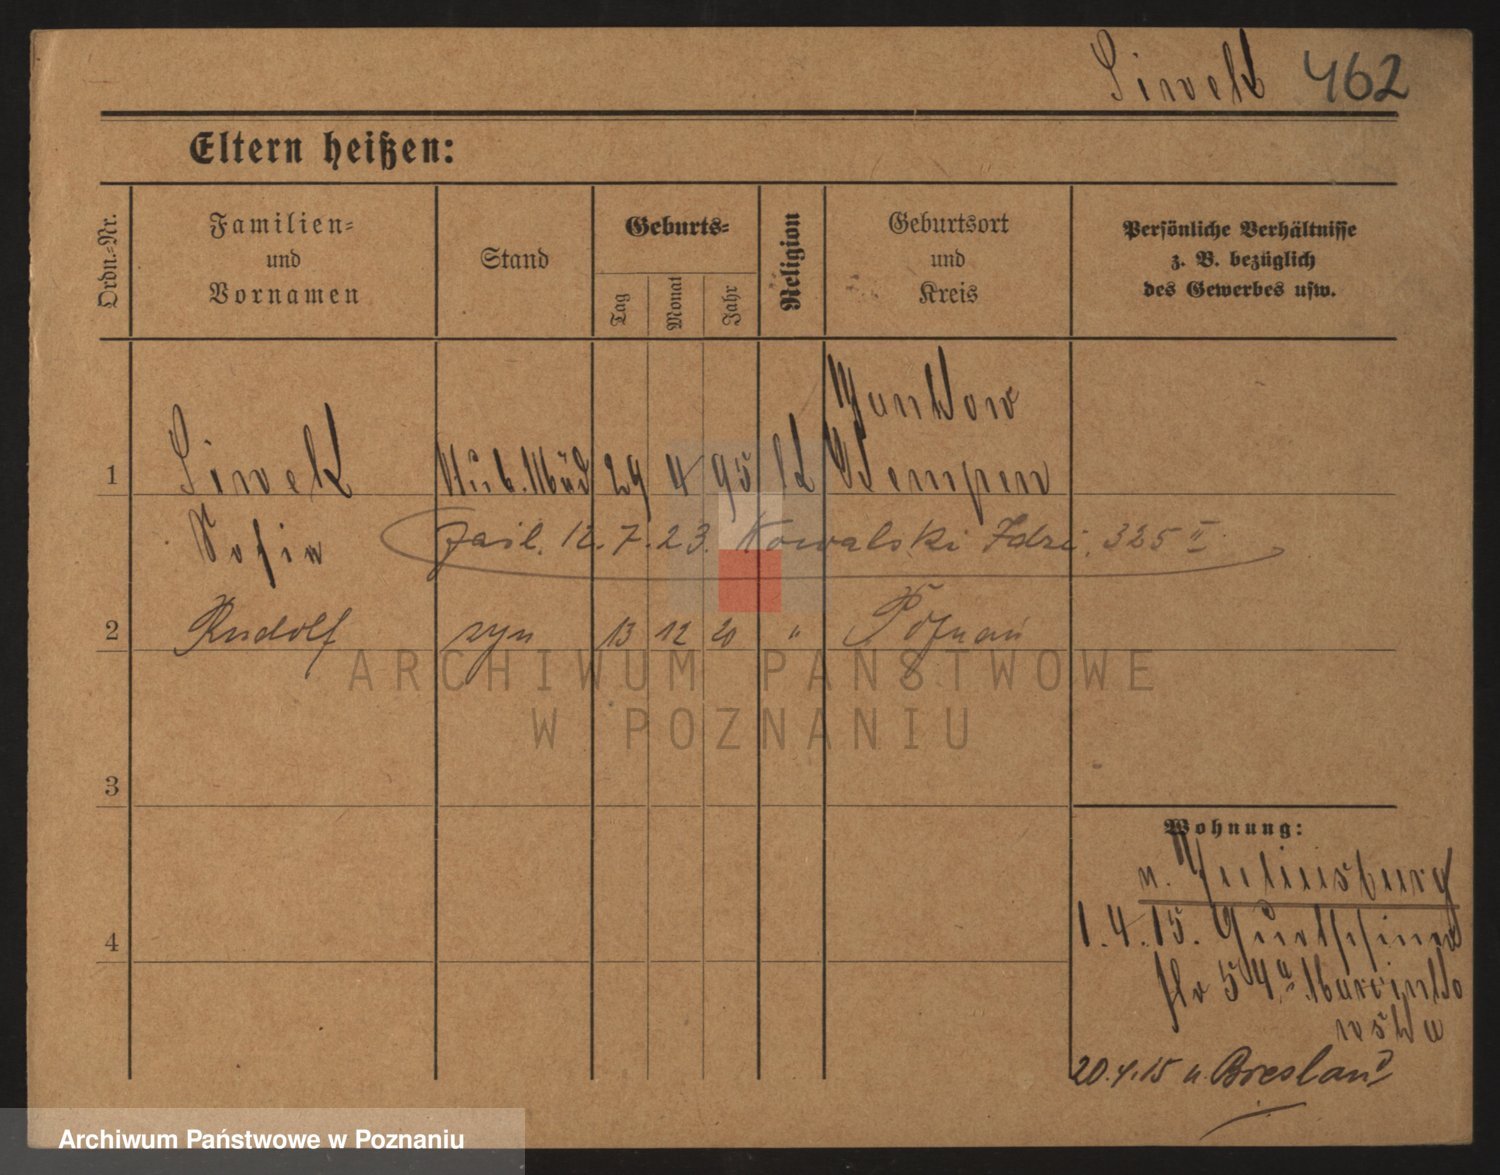 Siwek 462
Eltern heißen:
Ordn.-Nr.
Familien-
und
Vornamen
Stand
Geburts-
Tag
Monat
Jahr
Religion
Geburtsort
und
Kreis
Persönliche Verhältnisse
z. B. bezüglich
des Gewerbes usw.
Jankow
1 Siwek 29 4 95 k Kempen
Sofie
zaśl. 12.7.23. Kowalski Idzi, 325 II
2 Rudolf syn 13 12 20 " Poznań
3
Wohnung:
n. Juliusburg
4
1.4.15.
str 54a Marcinko
wska
20.4.15 n. Breslau
ARCHIWUM PAŃSTWOWE
W POZNANIU
Archiwum Państwowe w Poznaniu